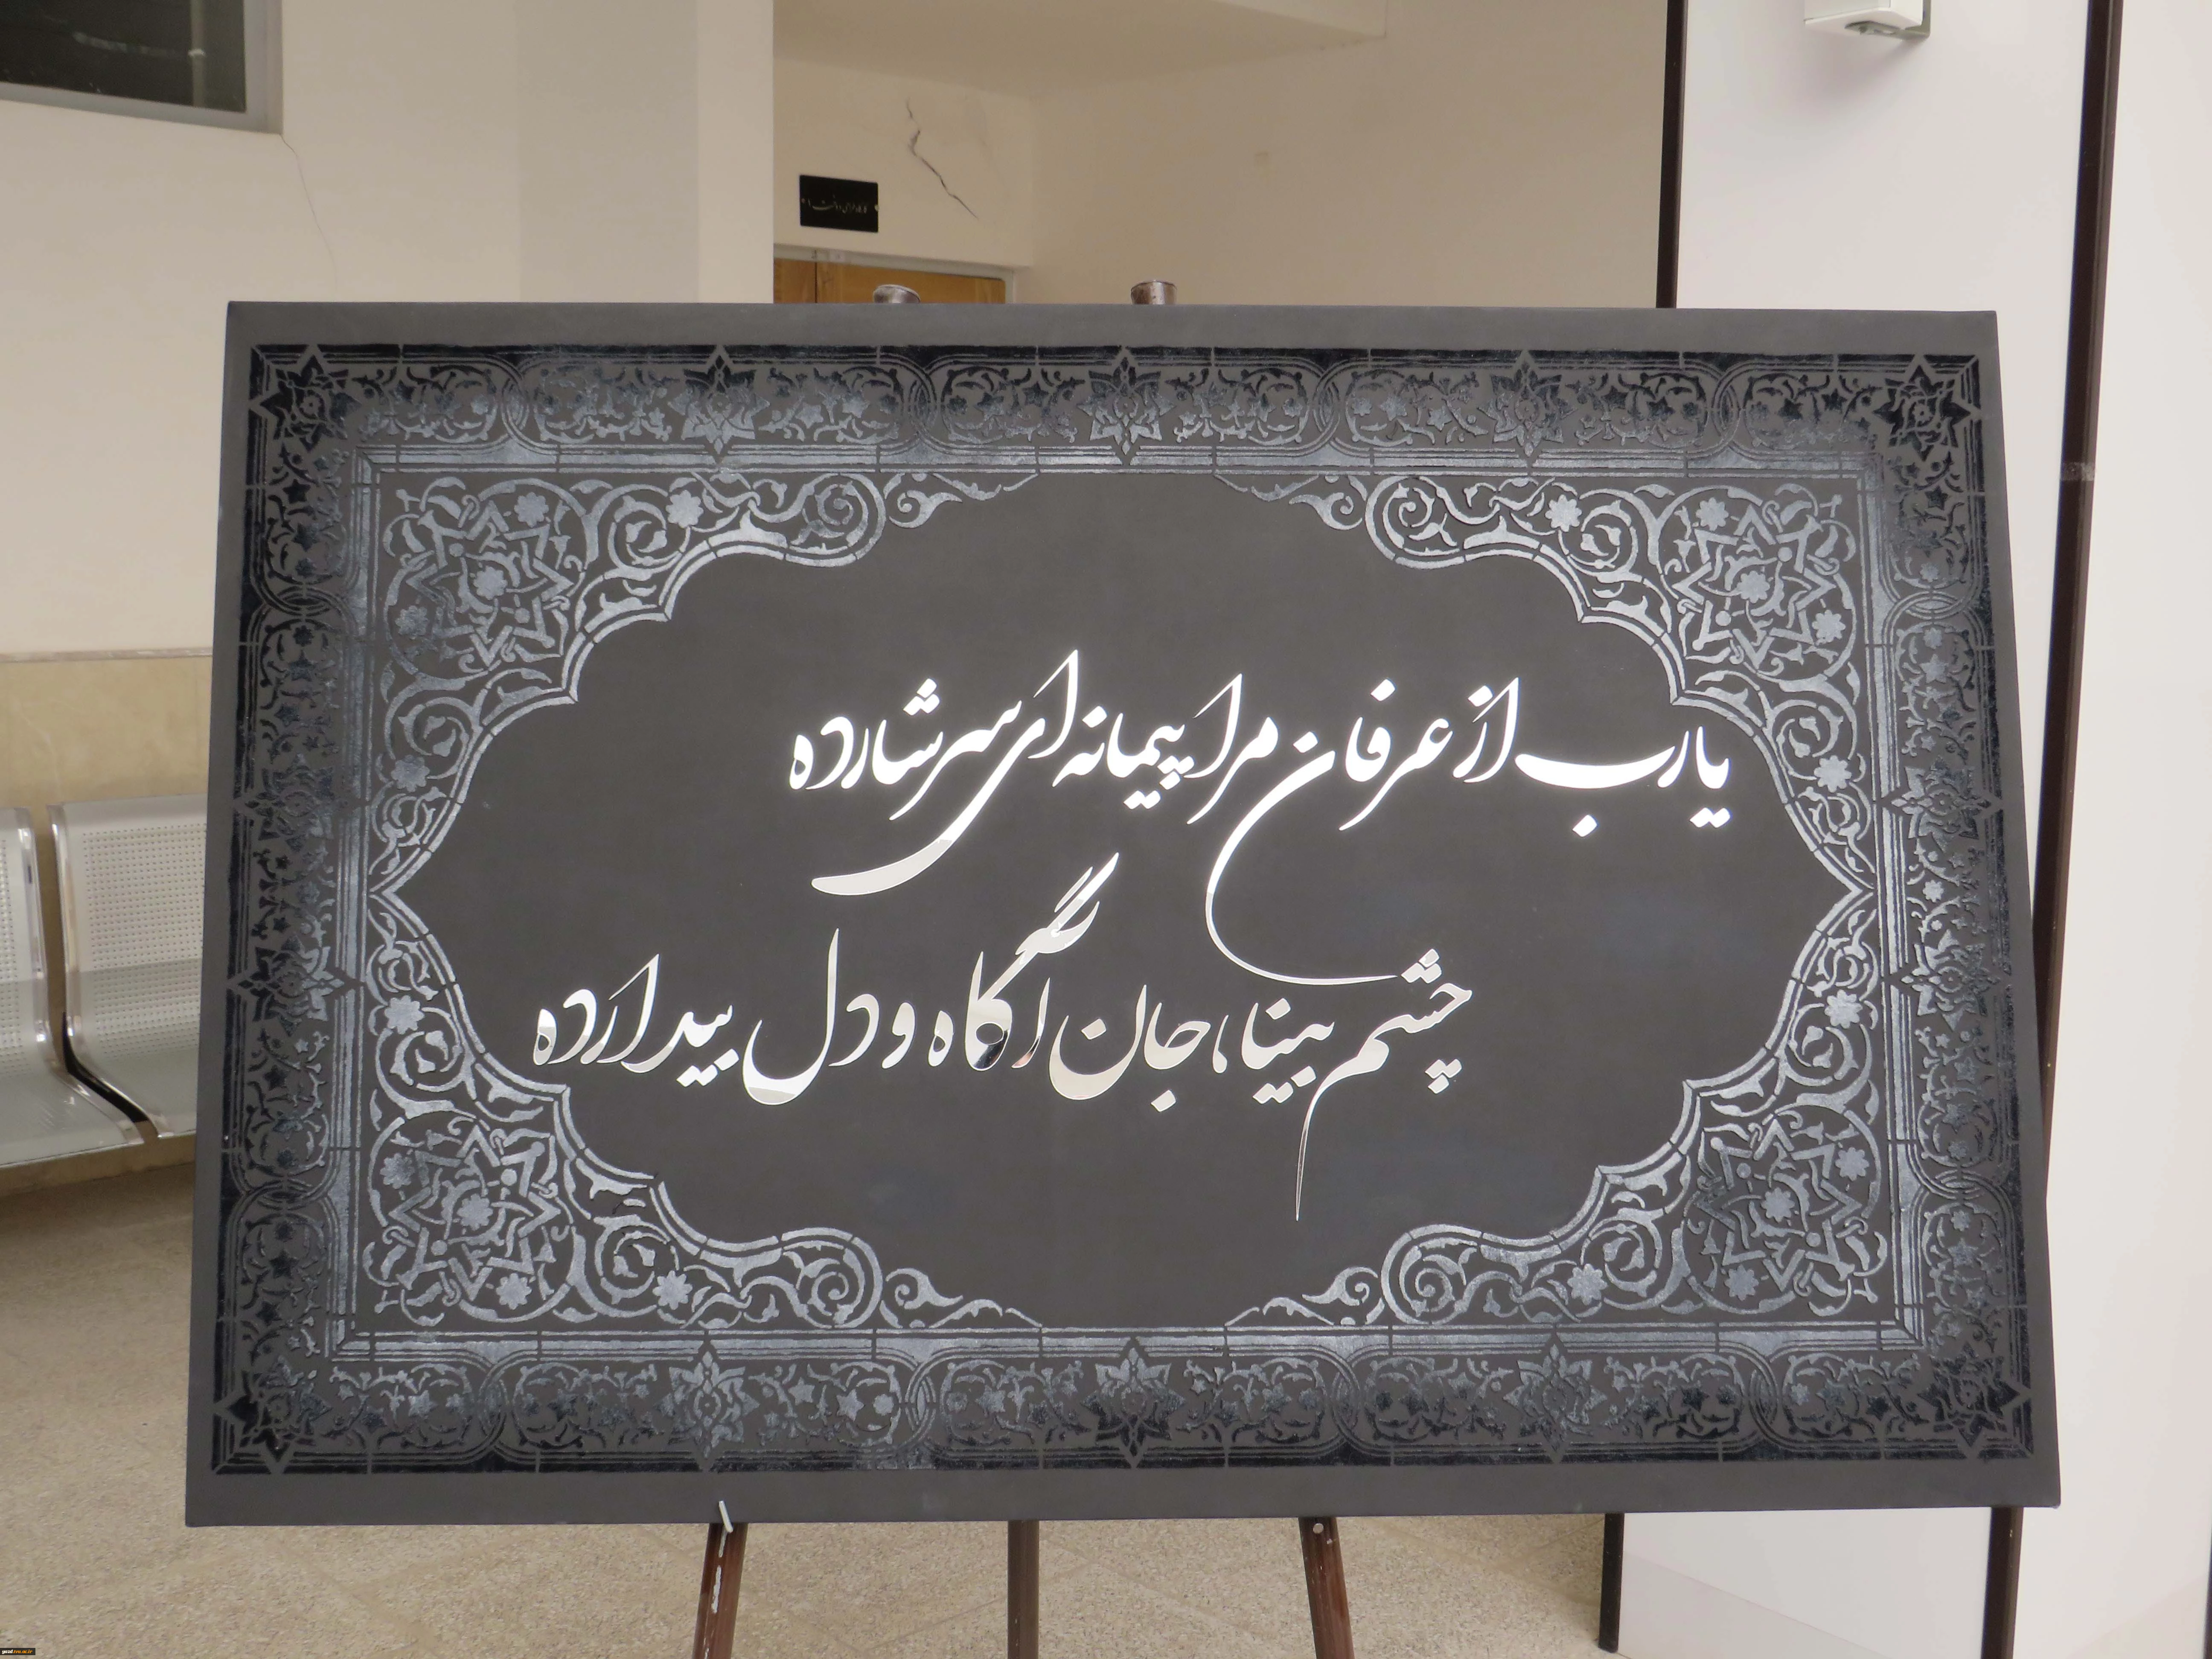 یارب از عرفان مرا پیمانه ای سرشار ده
چشم بینا، جان آگاه و دل بیدار ده